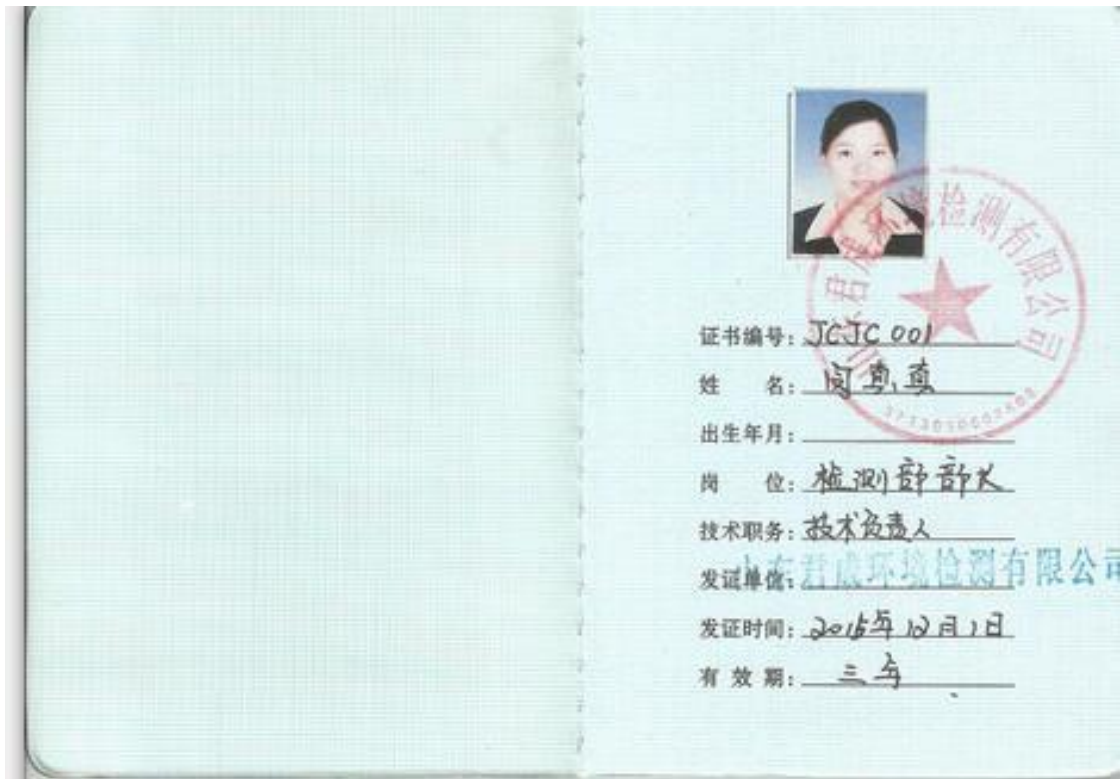 山东君成环境检测有限公司
证书编号：JCJC 001
姓 名：闫真真
出生年月：
岗 位：检测部部长
技术职务：技术负责人
发证单位：山东君成环境检测有限公司
发证时间：2015年12月1日
有 效 期：三年